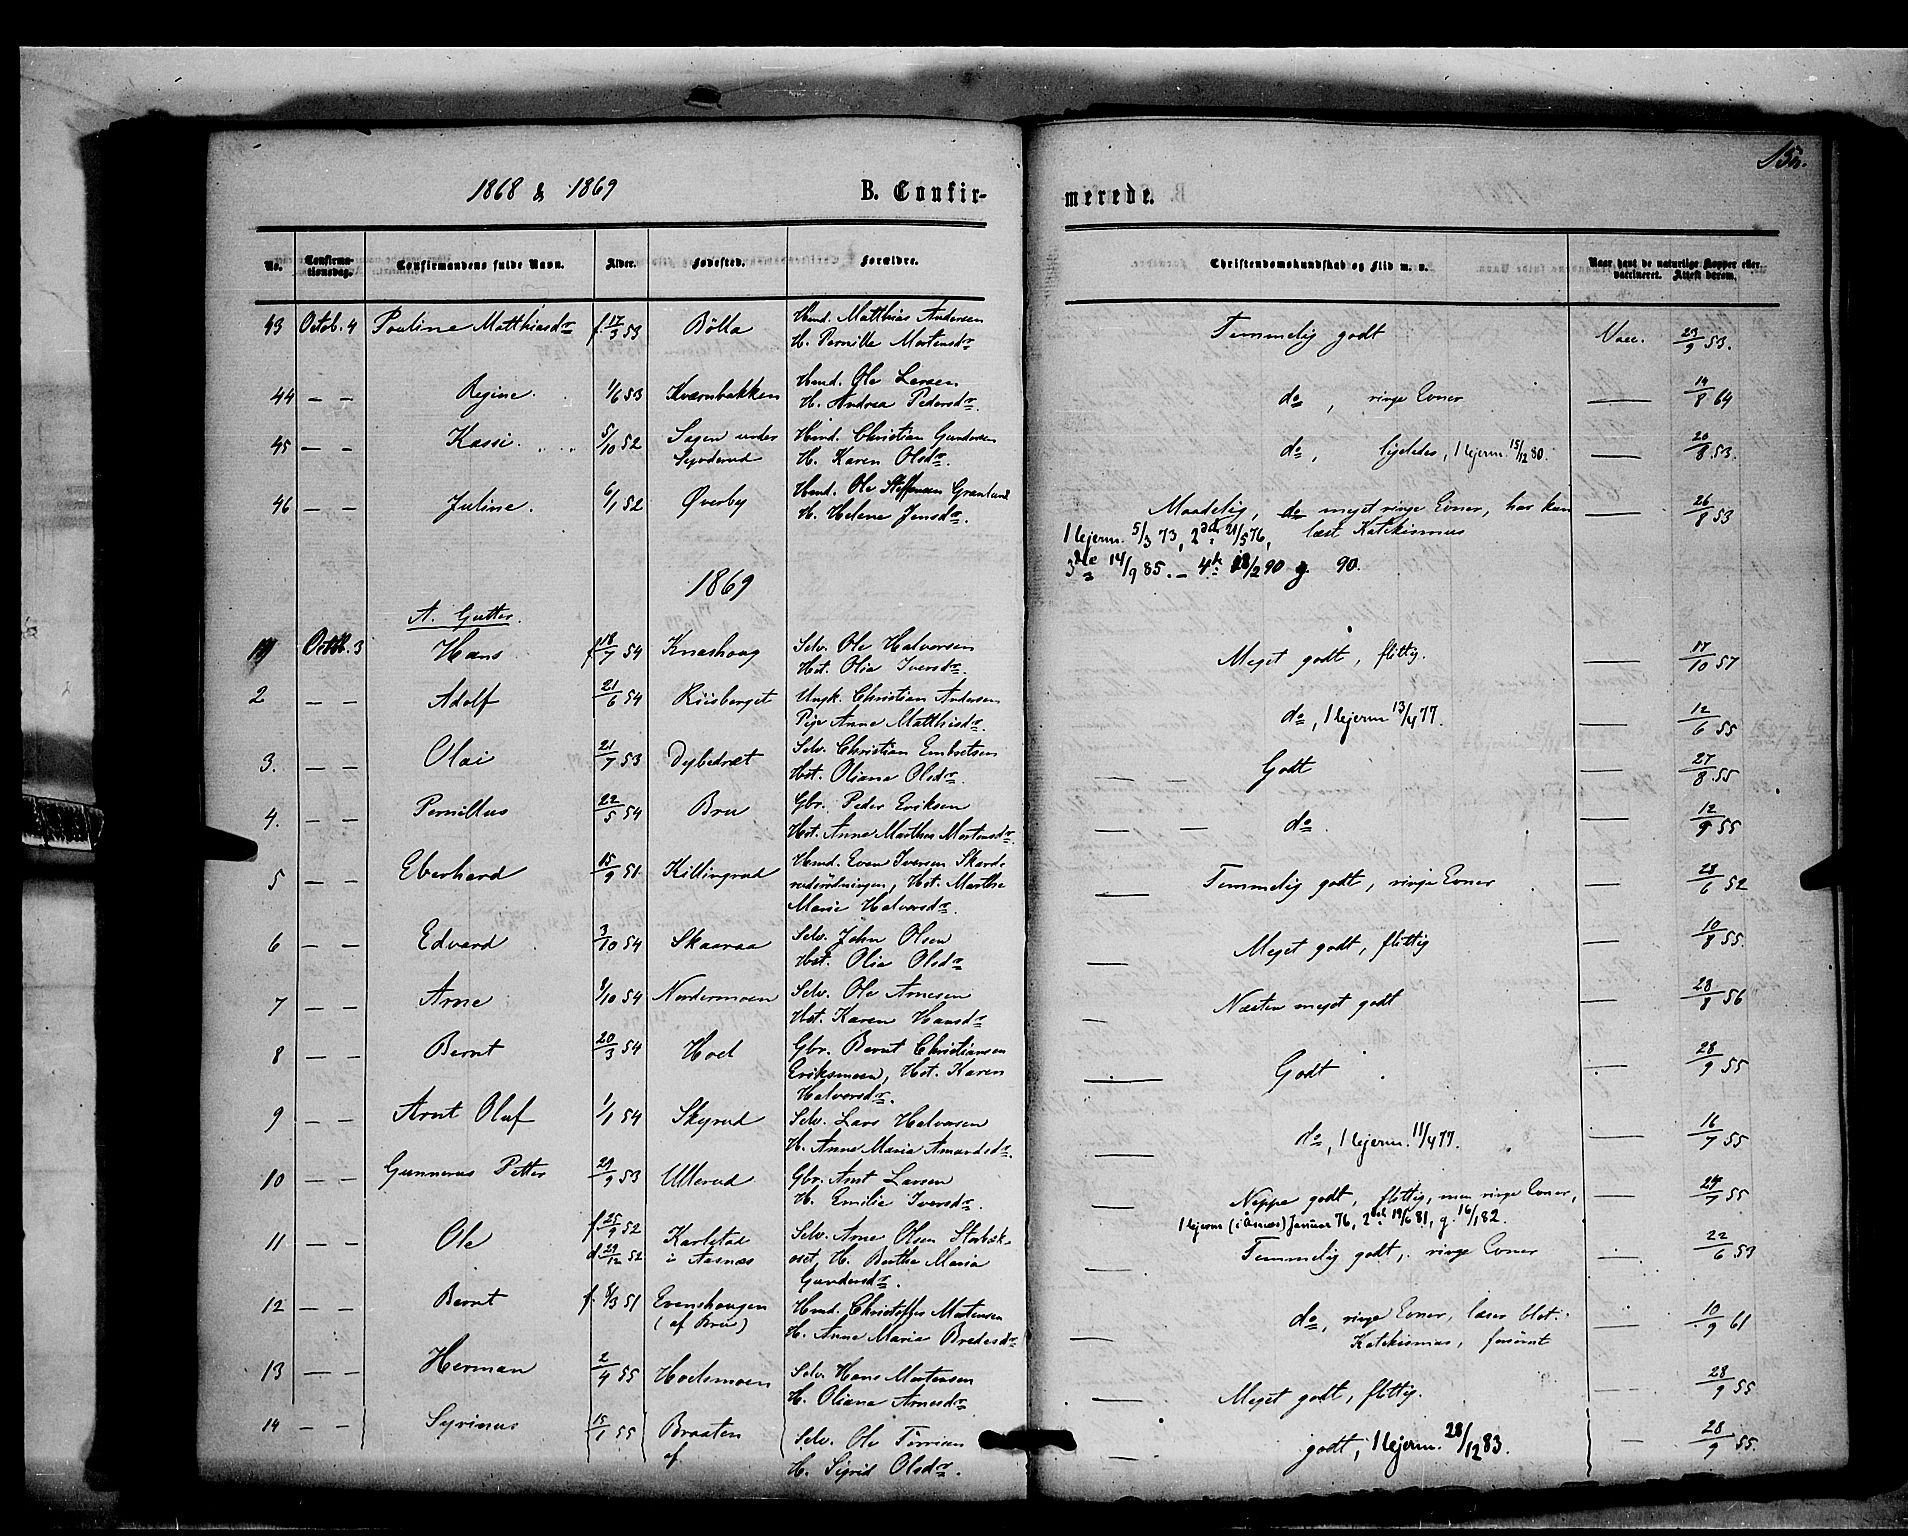 1868 & 1869 B. Confir-
merede.
No. Confirma-
tionsdag. Confirmandens fulde Navn. Alder. Fødested. Forældre.
Christendomskundskab og Flid m. v. Naar havt de naturlige Kopper eller
vaccineret. Attest derom.
43 Octob. 4 Pauline Matthiasdr f 17/3 53 Bölla Hmd. Matthias Andersen
H. Pernille Mortensdr. Temmelig godt Vacc. 23/9 53.
44 — — Regine. 1/6 53 Kværnbakken Hmd. Ole Larsen
H. Andrea Pedersdr. do, ringe Evner — 14/8 64
45 — — Kassi. 5/10 52 Sagen under
Hmd. Christian Gundersen
H. Karen Olsdr. do, ligeledes, 1 lejerm. 15/12 80. — 20/8 53.
46 — — Juline. 6/1 52 Øverby Hmd. Ole Steffensen Granlund
H. Helene Jensdr. Maadelig, do meget ringe Evner, har kun
læst Katekismus — 26/8 53
1 lejerm. 5/3 73, 2den 21/5 76,
3de 14/9 85. – 4de 28/2 90 g. 90.
1869
A. Gutter.
1 Octbr. 3 Hans f 18/7 54 Knashaug Selv. Ole Halvorsen
Hst. Olia Iversdr. Meget godt, flittig. — 17/10 57
2 — — Adolf 21/6 54 Riisberget Ungk. Christian Andersen
Pige Anne Matthisdr. do, 1 lejerm 13/4 77. — 12/6 55
3. — — Olai 21/7 53 Dybedræt Selv. Christian Embretsen
Hst. Oliana Olsdr. Godt — 27/8 55
4. — — Pernillus 22/5 54 Bru Gbr. Peder Eriksen
Hst. Anne Marthea Mortensdr. do. — 12/9 55
5 — — Eberhard 15/9 51 Killingrud Hmd. Even Iversen Skard-
rudrödningen, Hst. Marthe
Marie Halvorsdr. Temmelig godt, ringe Evner — 28/6 52
6 — — Edvard 3/10 54 Skaaraa Selv. John Olsen
Hst. Olia Olsdr Meget godt, flittig — 10/8 55.
7 — — Arne /10 54 Nordermoen Selv. Ole Arnesen
Hst. Karen Hansdr Næsten meget godt — 28/8 56
8 — — Bernt 20/3 54 Hoel Gbr. Bernt Christiansen
Eriksmoen, Hst. Karen
Halvorsdr. Godt — 28/9 55
9 — — Arnt Oluf 1/1 54 Skyrud Selv. Lars Halvorsen
H. Anne Maria Amundsdr. do, 1 lejerm. 11/4 77. — 16/7 55
10 — — Gunnerus Petter 29/9 53 Ullerud Gbr. Arnt Larsen
H. Emilie Iversdr. Neppe godt, flittig, men ringe Evner, — 24/7 55
1 lejerm (i Åsnes) Januar 76, 2det 19/6 81, g. 16/1 82.
11 — — Ole f 25/9 52
d 29/12 52 Karlstad
i Aasnæs Selv. Arne Olsen Storbæk-
oset, H. Berthe Maria
Gundersdr. Temmelig godt, ringe Evner — 22/6 53
12 — — Bernt f. 8/3 51 Evenshaugen
(af Bru) Hmd. Christoffer Mortensen
H. Anne Maria Bredesdr do, ringe Evner, læser blot
Katekismus, forsømt — 10/9 61
13 — — Herman 2/4 55 Hoelsmoen Selv. Hans Mortensen
H. Oliana Arnesdr Meget godt, flittig. — 28/9 55
14 — — Syrinus 15/1 55 Braaten
af Selv. Ole
H. Sigrid Olsdr. godt, 1 lejerm. 28/12 83. — 28/9 55.